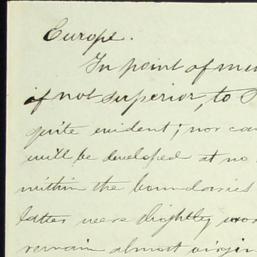 Europe.
In point of
if not superior, to
quite evident; nor
will be developed at no
within the boundaries
latter were slightly
remain almost